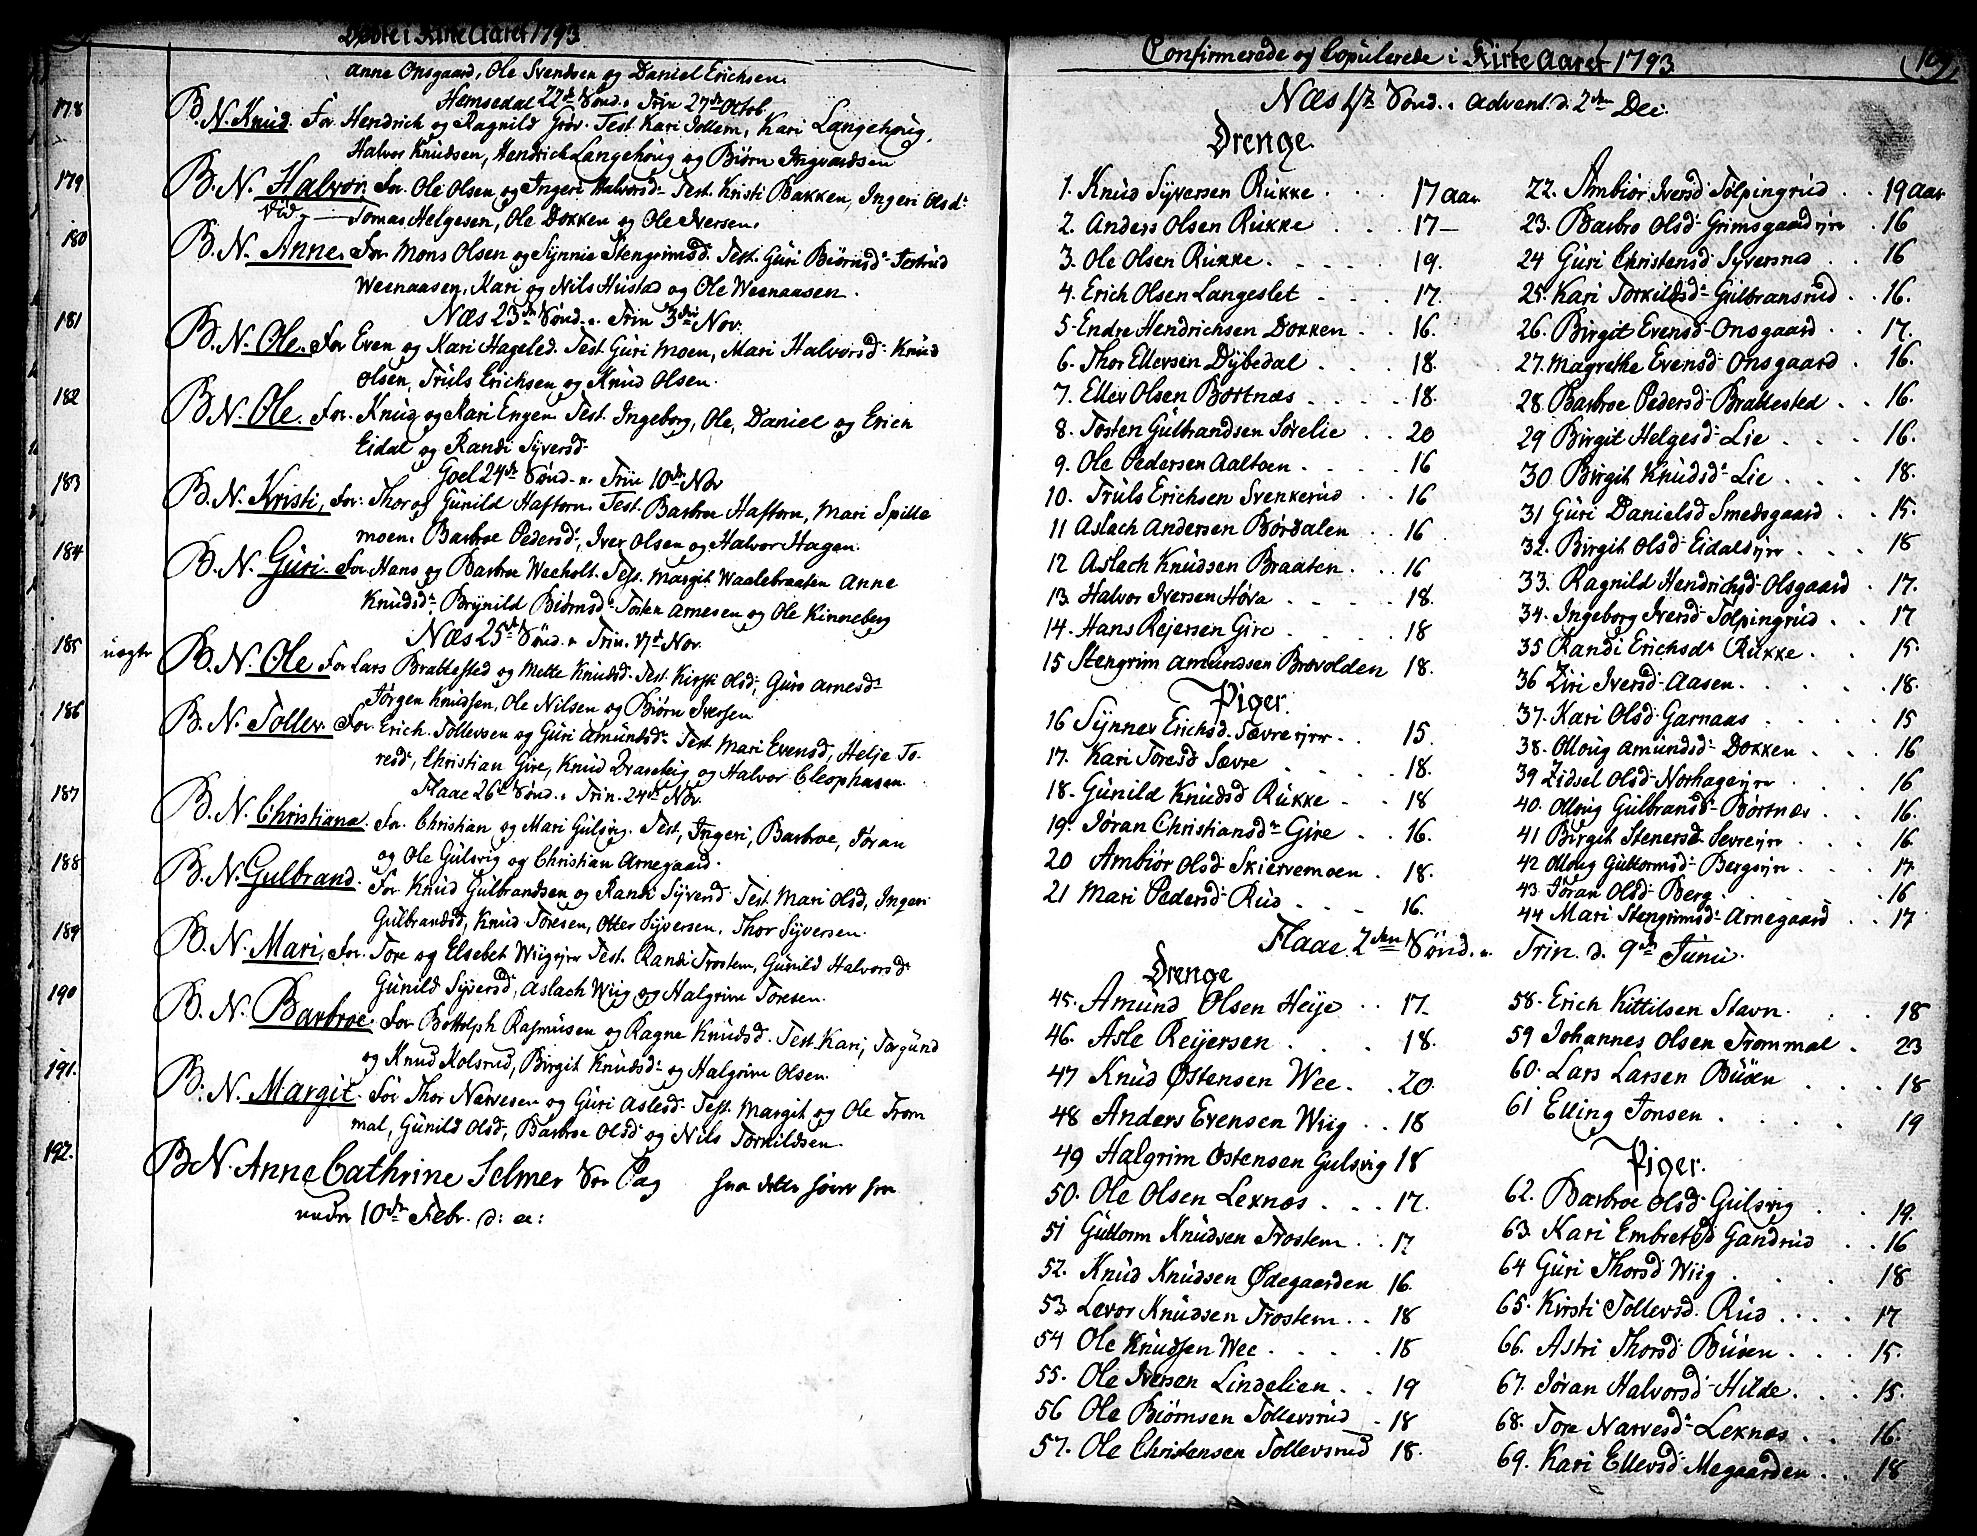 Døbte i Kirke Aaret 1793
Anne Onsgaard, Ole Svendsen og Daniel Erichsen.
Hemsedal 22de Sønd. Trin 27de Octob.
178 B. N. Knud. For. Hendrich og Ragnild Grøv. Test. Kari Tollem, Kari Langehoug,
Halvor Knudsen, Hendrich Langehoug og Biørn Ingvardsen
179 B. N. Halvor, For. Ole Olsen og Ingeri Halvorsd. Test. Kristi Bakken, Ingeri Olsd.
Tomas Helgesen, Ole Dokken og Ole Iversen.
180 B. N. Anne. For. Mons Olsen og Synnie Stengrimsd. Test. Guri Biørnsd.
Weenaasen, Kari og Nils Hustad og Ole Weenaasen.
Næs 23de Sønd. Trin 3die Nov.
181 B. N. Ole. For. Even og Kari Hageled. Test. Guri Moen, Mari Halvorsd. Knud
Olsen, Truls Erichsen og Knud Olsen.
182 B. N. Ole. For. Knud og Kari Engen Test. Ingeborg, Ole, Daniel og Erich
Eidal og Randi Syversd.
Goel 24de Sønd. Trin 10de Nov
183 B. N. Kristi, For: Thor og Gunild Haftorn. Test. Barbroe Haftorn, Mari Spille
moen, Barbroe Pedersd, Iver Olsen og Halvor Hagen.
184 B. N. Guri. For. Hans og Barbroe Weeholt. Test. Margit Waalebraaten Anne
Knudsd. Brynild Biørnsd. Tosten Arnesen og Ole Kinneberg
Næs 25de Sønd. Trin. 17d. Nov.
185 uægte B. N. Ole For. Lars Brattested og Mette Knudsd. Test. Kirsti Olsd, Guro Arnesd.
Jørgen Knudsen, Ole Nilsen og Biørn Iversen
186 B. N. Tollev. For. Erich Tollevsen og Guri Amundsd. Test. Mari Evensd, Helje To-
resd, Christian Gire, Knud og Halvor Cleophasen.
Flaae 26de Sønd. Trin. 24de Nov.
187 B. N. Christiana. For. Christian og Mari Gulsvig. Test, Ingeri, Barbroe, Jøran
og Ole Gulsvig og Christian Arnegaard.
188 B. N. Gulbrand. For. Knud Gulbrandsen og Randi Syversd Test. Mari Olsd, Ingeri
Gulbrandsd, Knud Toresen, Otter Syversen, Thor Syversen.
189 B. N. Mari, For. Tore og Elsebet Wiigejer Test. Randi Trostem, Gunild Halvorsd.
Gunild Syversd, Aslach Wiig og Halgrim Toresen.
190 B. N. Barbroe. For. Bottolph Rasmusen og Ragne Knudsd. Test. Kari, Torgund
og Knud Kolsrud, Birgit Knudsd. og Halgrim Olsen.
191. B. N. Margit. For Thor Narvesen og Guri Aslesd. Test. Margit og Ole From
mal, Gunild Olsd, Barbroe Olsd og Nils Torkildsen.
192. B. N. Anne Cathrine Selmer
under 10de Febr. d: a:
Confirmerede og Copulerede i Kirke Aaret 1793
109
Næs 1ste Sønd. Advent d. 2de Dec.
Drenge.
1. Knud Syversen Rukke . . 17 Aar
2. Anders Olsen Rukke . . . 17 —
3. Ole Olsen Rukke . . . . 19.
4. Erich Olsen Langeslet . . . 17.
5. Endre Hendrichsen Dokken . . 16.
6. Thor Ellevsen Dybedal . . . 18.
7. Ellev Olsen Bortnæs . . . . 18.
8. Tosten Gulbrandsen Sørelie . . 20
9. Ole Pedersen Aaltoen . . . . 16
10. Truls Erichsen Svenkerud . . 16
11 Aslach Andersen Børdalen . . 16
12 Aslach Knudsen Braaten . . 16
13. Halvor Iversen Hova . . . . 18.
14. Hans Rejersen Gire . . . . 18
15 Stengrim Amundsen Brovolden 18.
Piger.
16 Synnev Erichsd. Sævreejer . . 15.
17. Kari Toresd Sævre . . . . 18.
18. Gunild Knudsd Rukke . . 18
19. Jøran Christiansd. Gire . . 16.
20 Ambiør Olsd. Skiervemoen . 18.
21 Mari Pedersd. Rud . . . . 16.
22. Ambior Iversd Tolpingrud . . 19 Aar
23. Barbro Olsd. Grimsgaardejer . 16
24 Guri Christensd Syversrud . . 16
25. Kari Torkildsd. Gulbransrud . . 16.
26. Birgit Evensd. Onsgaard . . 17.
27. Magrethe Evensd. Onsgaard . 16.
28. Barbroe Pedersd. Brattested . . 16.
29 Birgit Helgesd. Lie . . . . 16.
30 Birgit Knudsd. Lie . . . . 18.
31 Guri Danielsd Smedsgaard . . 15.
32. Birgit Olsd. Eidalsejer . . . 18
33. Ragnild Hendrichsd. Olsgaard . 17.
34. Ingeborg Iversd. Tolpingrud . . 17
35 Randi Erichsd. Rukke . . . 15.
36 Ziri Iversd. Aasen . . . . . 18.
37. Kari Olsd. Garnaas . . . . 15
38. Olloug Amundsd. Dokken . . . 16
39 Zidsel Olsd. Norhageejer . . 16
40. Olloug Gulbrandsd. Bortnæs . . 16.
41 Birgit Stenersd. Sevreejer . . 16
42 Olloug Guttormsd. Bergsejer . . 17
43 Jøran Olsd. Berg . . . . . 16
44 Mari Stengrimsd. Arnegaard . . 17
Flaae 2den Sønd. Trin. d. 9de Junii.
Drenge
45. Amund Olsen Heije . . 17.
46. Asle Reijersen . . . . 18.
47 Knud Østensen Wee . . 20.
48 Anders Evensen Wiig . . 18
49 Halgrim Ostensen Gulsvig 18
50. Ole Olsen Leknæs . . . 17.
51 Guttorm Knudsen Trostem . . 17
52. Knud Knudsen Ødegaarden 16
53. Lævor Knudsen Trostem . . 18
54 Ole Knudsen Wee . . . . 18
55. Ole Iversen Lindelien . . 19
56 Ole Biørnsen Tollevsrud . 18
57. Ole Christensen Tollevsrud 18.
58. Erich Kittilsen Stavn . . . 18
59 Johannes Olsen Frommal . 23
60. Lars Larsen Buøen . . . 18
61 Elling Jonsen . . . . . 19
Piger.
62. Barbroe Olsd. Gulsvig . . 19.
63. Kari Embretsd Gandrud . . 16
64 Guri Thorsd Wiig . . . . 18
65. Kirsti Tollevsd. Rud . . . . 17
66. Astri Thorsd. Buøen . . . 15.
67. Jøran Halvorsd. Hilde . . . 15.
68. Tore Narvesd. Leknæs . . 16.
69. Kari Ellevsd. Megaarden . . 18